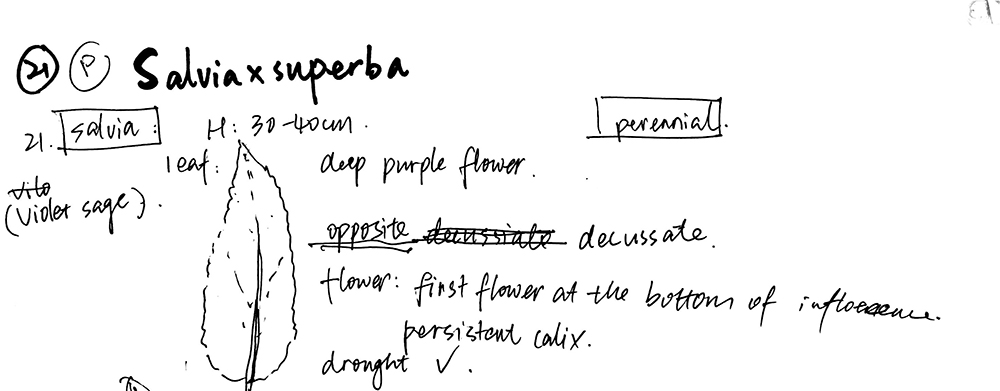 21 P Salvia x superba
21. salvia: H: 30-40cm. perennial.
leaf: deep purple flower.
(Violet sage).
opposite decussate.
flower: first flower at the bottom of
persistent calix.
drought ✓.